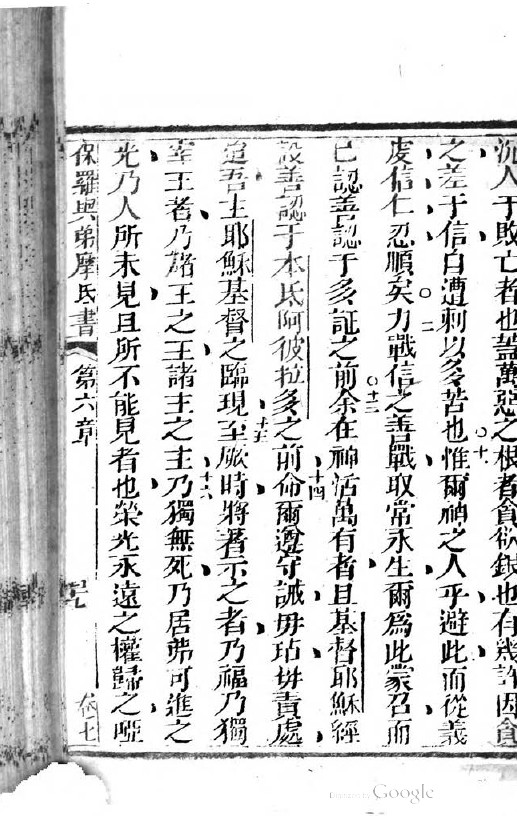 沉人于敗亡者也蓋萬惡之根者貪欲銀也有幾許因貪
十
之差于信自遭刺以多苦也惟爾神之人乎避此而從義
十一
虔信仁忍順矣力戰信之善戰取常永生爾為此蒙召而
十二
已認善認于多証之前余在神活萬有者且基督耶穌經
十三
設善認于本氏阿彼拉多之前命爾遵守誡毋玷毋責處
十四
迨吾主耶穌基督之臨現至厥時將著示之者乃福乃獨
十五
宰王者乃諸王之王諸主之主乃獨無死乃居弗可進之
十六
光乃人所未見且所不能見者也榮光永遠之權歸之啞
保羅與弟摩氏書 第六章 卷七
Digitized by Google